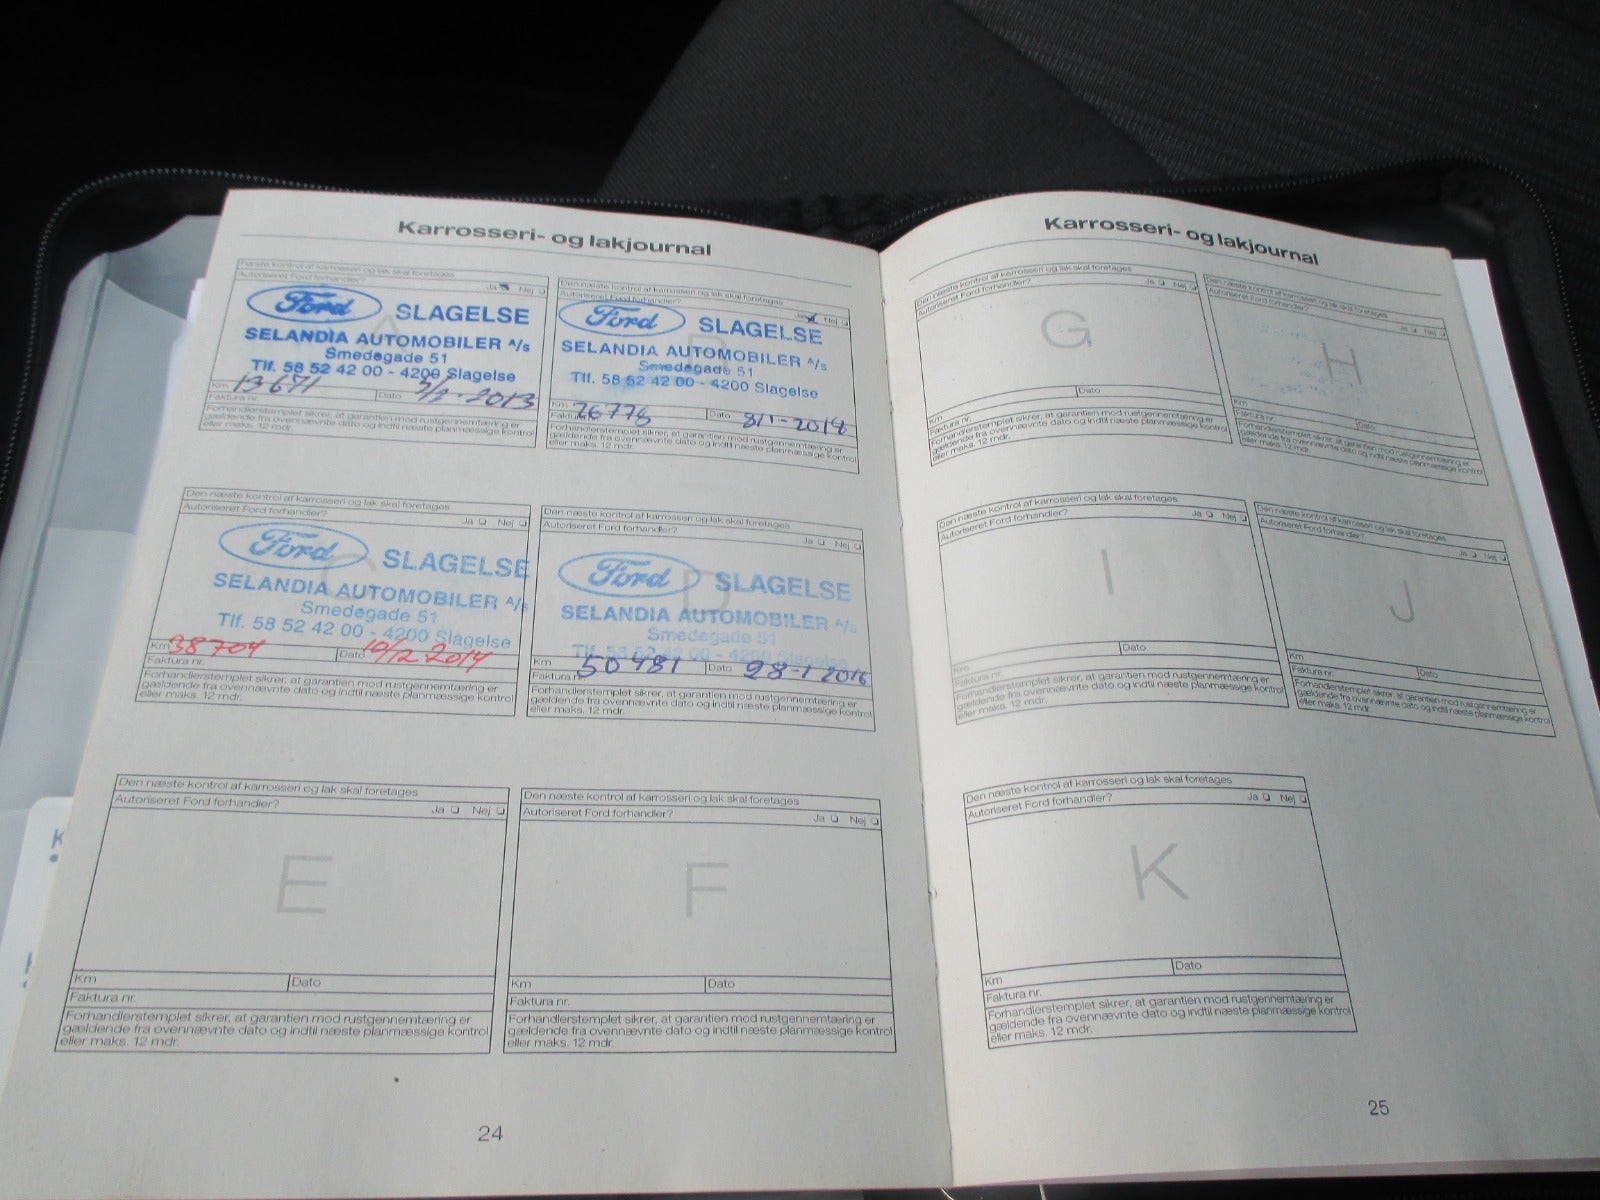 Karrosseri- og lakjournal
Første kontrol af karrosseri og lak skal foretages
Autoriseret Ford forhandler?
Ja Nej
A
Ford SLAGELSE
SELANDIA AUTOMOBILER A/s
Smedegade 51
Tlf. 58 52 42 00 - 4200 Slagelse
Km 13671 Dato 2013
Faktura nr.
Forhandlerstemplet sikrer, at garantien mod rustgennemtæring er
gældende fra ovennævnte dato og indtil næste planmæssige kontrol
eller maks. 12 mdr.
Den næste kontrol af karrosseri og lak skal foretages
Autoriseret Ford forhandler?
Ja Nej
B
Ford SLAGELSE
SELANDIA AUTOMOBILER A/s
Smedegade 51
Tlf. 58 52 42 00 - 4200 Slagelse
Km 26778 Dato 8/1-2014
Faktura nr.
Forhandlerstemplet sikrer, at garantien mod rustgennemtæring er
gældende fra ovennævnte dato og indtil næste planmæssige kontrol
eller maks. 12 mdr.
Den næste kontrol af karrosseri og lak skal foretages
Autoriseret Ford forhandler?
Ja Nej
C
Ford SLAGELSE
SELANDIA AUTOMOBILER A/s
Smedegade 51
Tlf. 58 52 42 00 - 4200 Slagelse
Km 38704 Dato 10/12 2014
Faktura nr.
Forhandlerstemplet sikrer, at garantien mod rustgennemtæring er
gældende fra ovennævnte dato og indtil næste planmæssige kontrol
eller maks. 12 mdr.
Den næste kontrol af karrosseri og lak skal foretages
Autoriseret Ford forhandler?
Ja Nej
D
Ford SLAGELSE
SELANDIA AUTOMOBILER A/s
Smedegade 51
Tlf. 58 52 42 00 - 4200 Slagelse
Km 50481 Dato 28-1 2016
Faktura nr.
Forhandlerstemplet sikrer, at garantien mod rustgennemtæring er
gældende fra ovennævnte dato og indtil næste planmæssige kontrol
eller maks. 12 mdr.
Den næste kontrol af karrosseri og lak skal foretages
Autoriseret Ford forhandler?
Ja Nej
E
Km Dato
Faktura nr.
Forhandlerstemplet sikrer, at garantien mod rustgennemtæring er
gældende fra ovennævnte dato og indtil næste planmæssige kontrol
eller maks. 12 mdr.
Den næste kontrol af karrosseri og lak skal foretages
Autoriseret Ford forhandler?
Ja Nej
F
Km Dato
Faktura nr.
Forhandlerstemplet sikrer, at garantien mod rustgennemtæring er
gældende fra ovennævnte dato og indtil næste planmæssige kontrol
eller maks. 12 mdr.
24
Karrosseri- og lakjournal
Den næste kontrol af karrosseri og lak skal foretages
Autoriseret Ford forhandler?
Ja Nej
G
Km Dato
Faktura nr.
Forhandlerstemplet sikrer, at garantien mod rustgennemtæring er
gældende fra ovennævnte dato og indtil næste planmæssige kontrol
eller maks. 12 mdr.
Den næste kontrol af karrosseri og lak skal foretages
Autoriseret Ford forhandler?
Ja Nej
H
Km Dato
Faktura nr.
Forhandlerstemplet sikrer, at garantien mod rustgennemtæring er
gældende fra ovennævnte dato og indtil næste planmæssige kontrol
eller maks. 12 mdr.
Den næste kontrol af karrosseri og lak skal foretages
Autoriseret Ford forhandler?
Ja Nej
I
Km Dato
Faktura nr.
Forhandlerstemplet sikrer, at garantien mod rustgennemtæring er
gældende fra ovennævnte dato og indtil næste planmæssige kontrol
eller maks. 12 mdr.
Den næste kontrol af karrosseri og lak skal foretages
Autoriseret Ford forhandler?
Ja Nej
J
Km Dato
Faktura nr.
Forhandlerstemplet sikrer, at garantien mod rustgennemtæring er
gældende fra ovennævnte dato og indtil næste planmæssige kontrol
eller maks. 12 mdr.
Den næste kontrol af karrosseri og lak skal foretages
Autoriseret Ford forhandler?
Ja Nej
K
Km Dato
Faktura nr.
Forhandlerstemplet sikrer, at garantien mod rustgennemtæring er
gældende fra ovennævnte dato og indtil næste planmæssige kontrol
eller maks. 12 mdr.
25